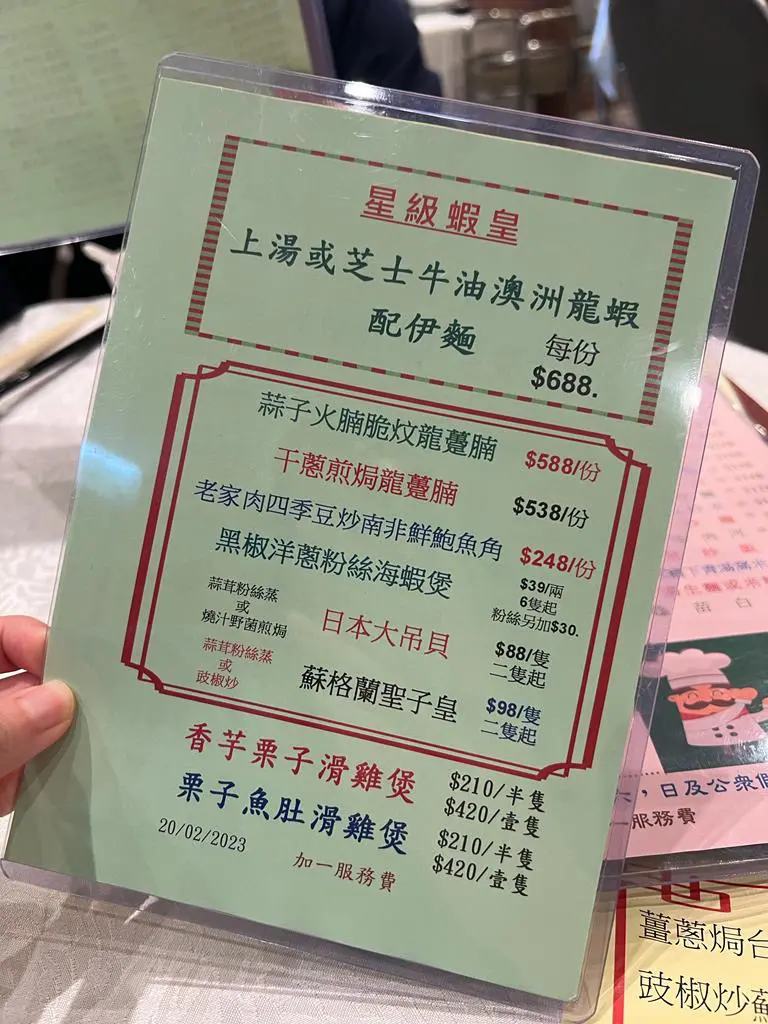 星級蝦皇
上湯或芝士牛油澳洲龍蝦
配伊麵
每份
$688.
蒜子火腩脆炆龍躉腩 $588/份
干蔥煎焗龍躉腩 $538/份
老家肉四季豆炒南非鮮鮑魚角 $248/份
黑椒洋蔥粉絲海蝦煲 $39/兩
6隻起
粉絲另加$30.
蒜茸粉絲蒸
或
燒汁野菌煎焗
日本大吊貝 $88/隻
二隻起
蒜茸粉絲蒸
或
豉椒炒
蘇格蘭聖子皇 $98/隻
二隻起
香芋栗子滑雞煲 $210/半隻
$420/壹隻
栗子魚肚滑雞煲 $210/半隻
$420/壹隻
20/02/2023
加一服務費
苗白
，日及公眾
服務費
薑蔥焗
豉椒炒